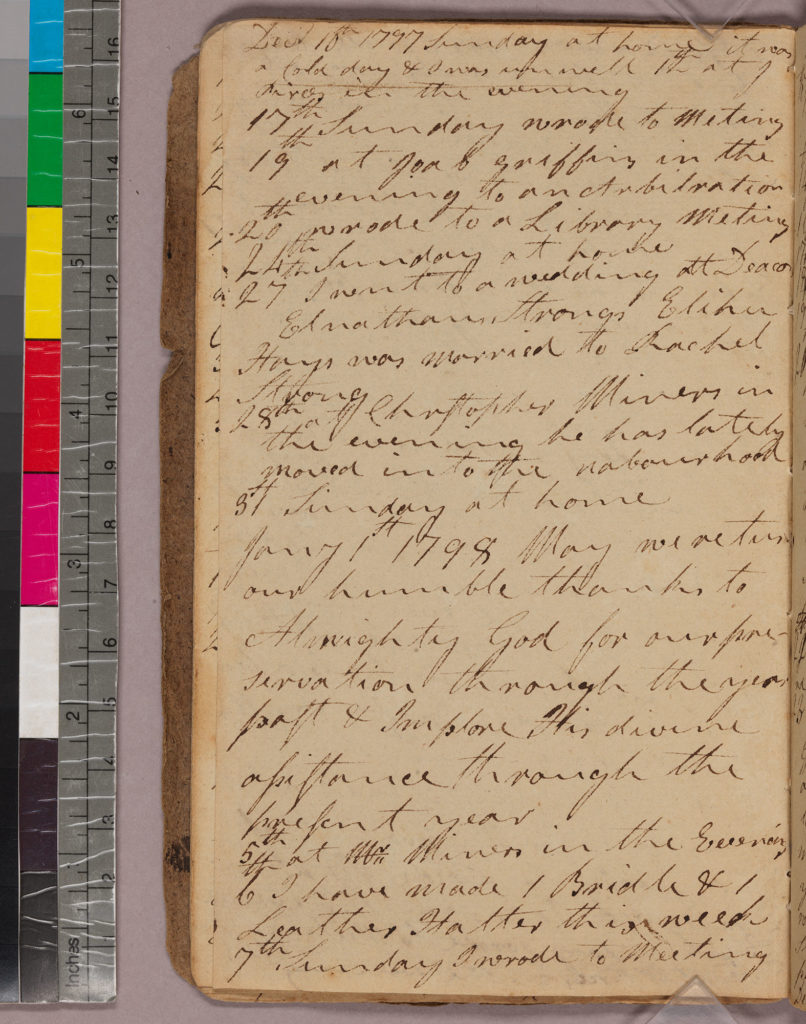 Dect 10th 1797 Sunday at home it was
a Cold day & I was unwell 1th at J
in the evening
17th Sunday wrode to Meting
19th at Joab griffins in the
evening to an Arbitration
20th wrode to a Library Meting
24th Sunday at home
27th I went to a wedding att Deacon
Elnathan Strongs Elihu
Hays was married to Rachel
Strong
28th at Christopher Miners in
the evening he has lately
moved into the nabourhood
31st Sunday at home
Jany 1st 1798 May we return
our humble thanks to
Almighty God for our pre-
servation through the year
past & Implore His divine
assistance through the
present year
5th at Mr Miners in the Evening
6th I have made 1 Bridle & 1
Leather Halter this week
7th Sunday I wrode to Meeting
Inches
1 2 3 4 5 6
1 2 3 4 5 6 7 8 9 10 11 12 13 14 15 16